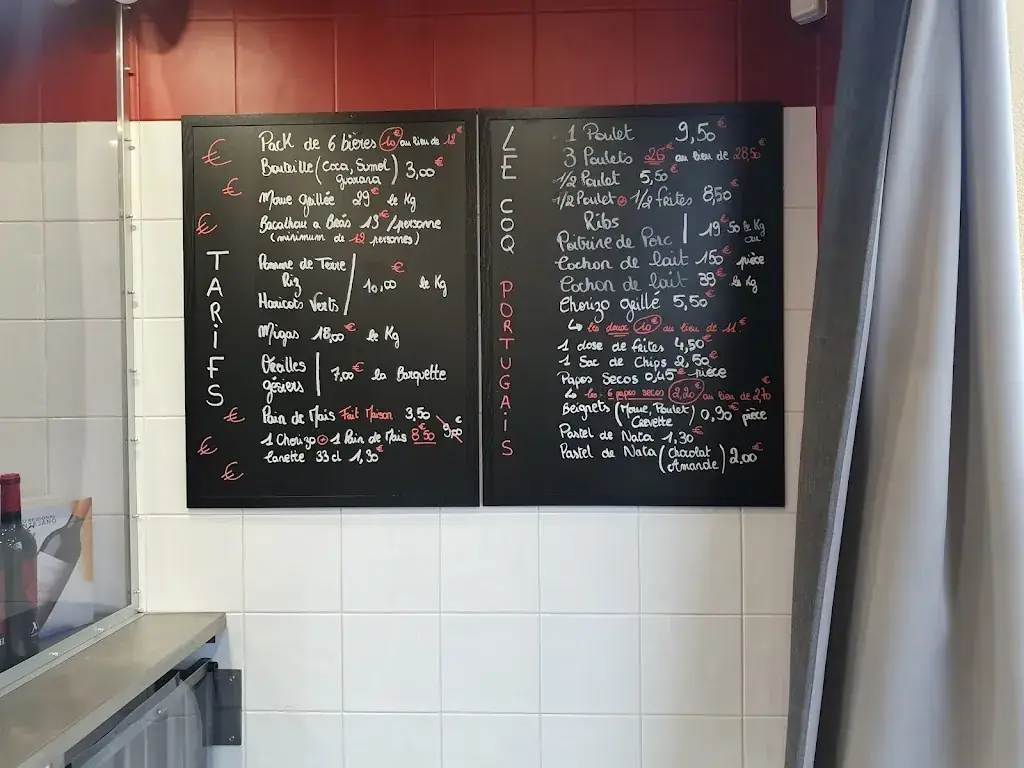 TARiFS
Pack de 6 bières 10€ au lieu de 12€
Bouteille (Coca, Sumol guarana) 3,00€
Morue grillée 29€ le Kg
Bacalhau a Brás 13€/personne
(minimum de 12 personnes)
Pomme de Terre
Riz
Haricots Verts
10,00€ le Kg
Migas 18,00€ le Kg
Oreilles
gésiers
7,00€ la Barquette
Pain de Maïs Fait Maison 3,50€
1 Chorizo + 1 Pain de Maïs 8€50 9,00
Canette 33cl 1,30€
LE COQ PORTUGAiS
1 Poulet 9,50€
3 Poulets 26€ au lieu de 28,50€
1/2 Poulet 5,50€
1/2 Poulet + 1/2 frites 8,50€
Ribs
Poitrine de Porc
19€50 le Kg cru
Cochon de lait 150€ pièce
Cochon de lait 39€ le Kg
Chorizo grillé 5,50€
↳ les deux 10€ au lieu de 11€
1 dose de frites 4,50€
1 Sac de Chips 2,50€
Papos Secos 0,45€ pièce
↳ les 6 papos secos 2,20€ au lieu de 2,70€
Beignets (Morue, Poulet, Crevette) 0,90€ pièce
Pastel de Nata 1,30€
Pastel de Nata (Chocolat Amande) 2,00€